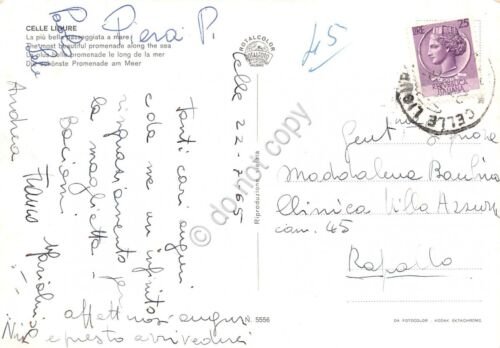 CELLE LIGURE
La più bella passeggiata a mare
The most beautiful promenade along the sea
La plus belle promenade le long de la mer
Die schönste Promenade am Meer
ROTALCOLOR
Pera P.
45
LIRE 25
REPUBBLICA ITALIANA
CELLE LIGURE
Celle 22-7-65
Tanti cari auguri
e da me un infinito
ringraziamento per
la maglietta
Bacioni
Andrea Franco Marialuisa
affettuosi auguri
e presto arrivederci
Gent.ma Signora
Maddalena Baulino
Clinica Villa Azzurra
cam. 45
Rapallo
Riproduzione vietata
N. 5556
DA FOTOCOLOR - KODAK EKTACHROME
do not copy